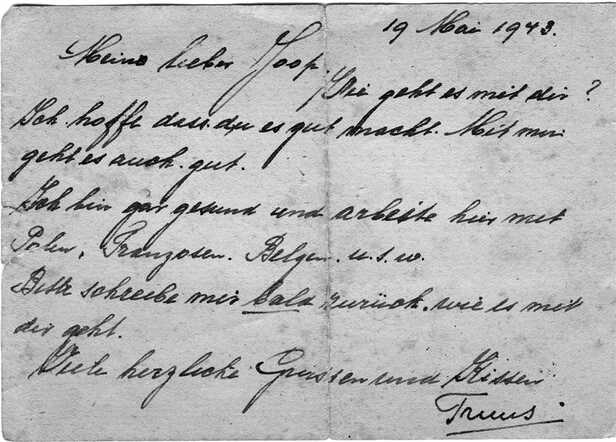 19 Mai 1943.
Meine lieber Joop,
Wie geht es mit dir?
Ich hoffe dass du es gut macht. Mit mir
geht es auch gut.
Ich bin gar gesund und arbeite hier met
Polen, Franzosen. Belgen. u.s.w.
Bitte schreibe mir bald zurück, wie es mit
dir geht.
Viele herzliche Grussen und Kissen
Truus.